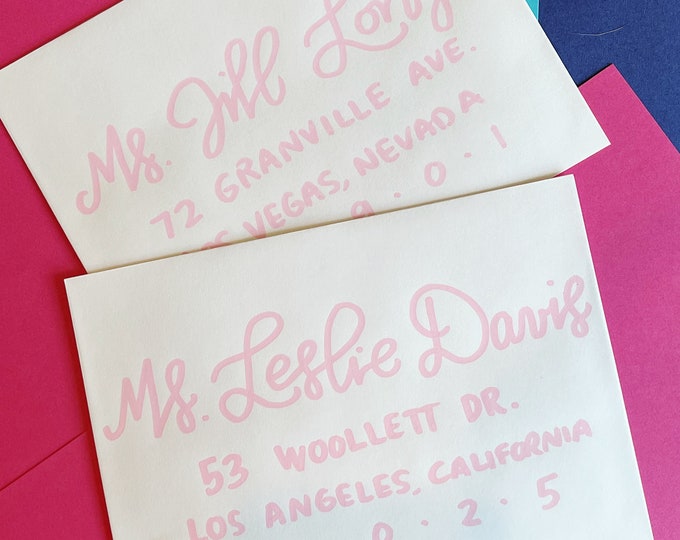 Ms. Jill Long
72 GRANVILLE AVE.
VEGAS, NEVADA
9 · 0 · 1
Ms. Leslie Davis
53 WOOLLETT DR.
LOS ANGELES, CALIFORNIA
0 · 2 · 5